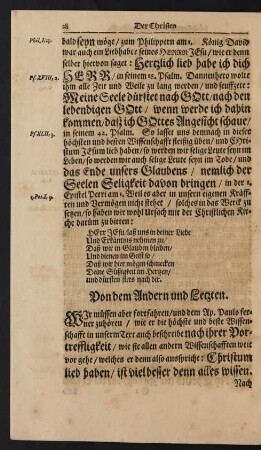 28 Der Christen
bald seyn möge/ zum Philippern am 1. König David
war auch ein Liebhaber seines HErren JEsu/ wie er denn
selber hiervon saget: Hertzlich lieb habe ich dich
HERR/ in seinem 18. Psalm. Dannenhero wolte
ihm alle Zeit und Weile zu lang werden/ und seuffzete:
Meine Seele dürstet nach GOtt/ nach dem
lebendigen GOtt/ wenn werde ich dahin
kommen/ daß ich GOttes Angesicht schaue/
in seinem 42. Psalm. So lasset uns demnach in dieser
höchsten und besten Wissenschafft fleissig üben/ und Chri-
stum JEsum lieb haben/ so werden wir selige Leute seyn im
Leben/ so werden wir auch selige Leute seyn im Tode/ und
das Ende unsers Glaubens/ nemlich der
Seelen Seligkeit davon bringen/ in der 1.
Epistel Petri am 1. Weil es aber in unsern eigenen Kräff-
ten und Vermögen nicht stehet/ solches in das Werck zu
setzen/ so haben wir wohl Ursach mit der Christlichen Kir-
che darüm zu bitten:
HErr JEsu laß uns in deiner Liebe
Und Erkäntnis nehmen zu/
Daß wir im Glauben bleiben/
Und dienen im Geist so/
Daß wir hier mögen schmecken
Deine Süßigkeit im Hertzen/
und dürsten stets nach dir.
Von dem Andern und Letzten.
WIr müssen aber fortfahren/ und dem Ap. Paulo fer-
ner zuhören/ wie er die höchste und beste Wissen-
schafft in unserm Text auch beschreibe nach ihrer Vor-
treffligkeit/ wie sie allen andern Wissenschafften weit
vor gehe/ welches er denn also ausspricht: Christum
lieb haben/ ist viel besser denn alles wissen.
Nach